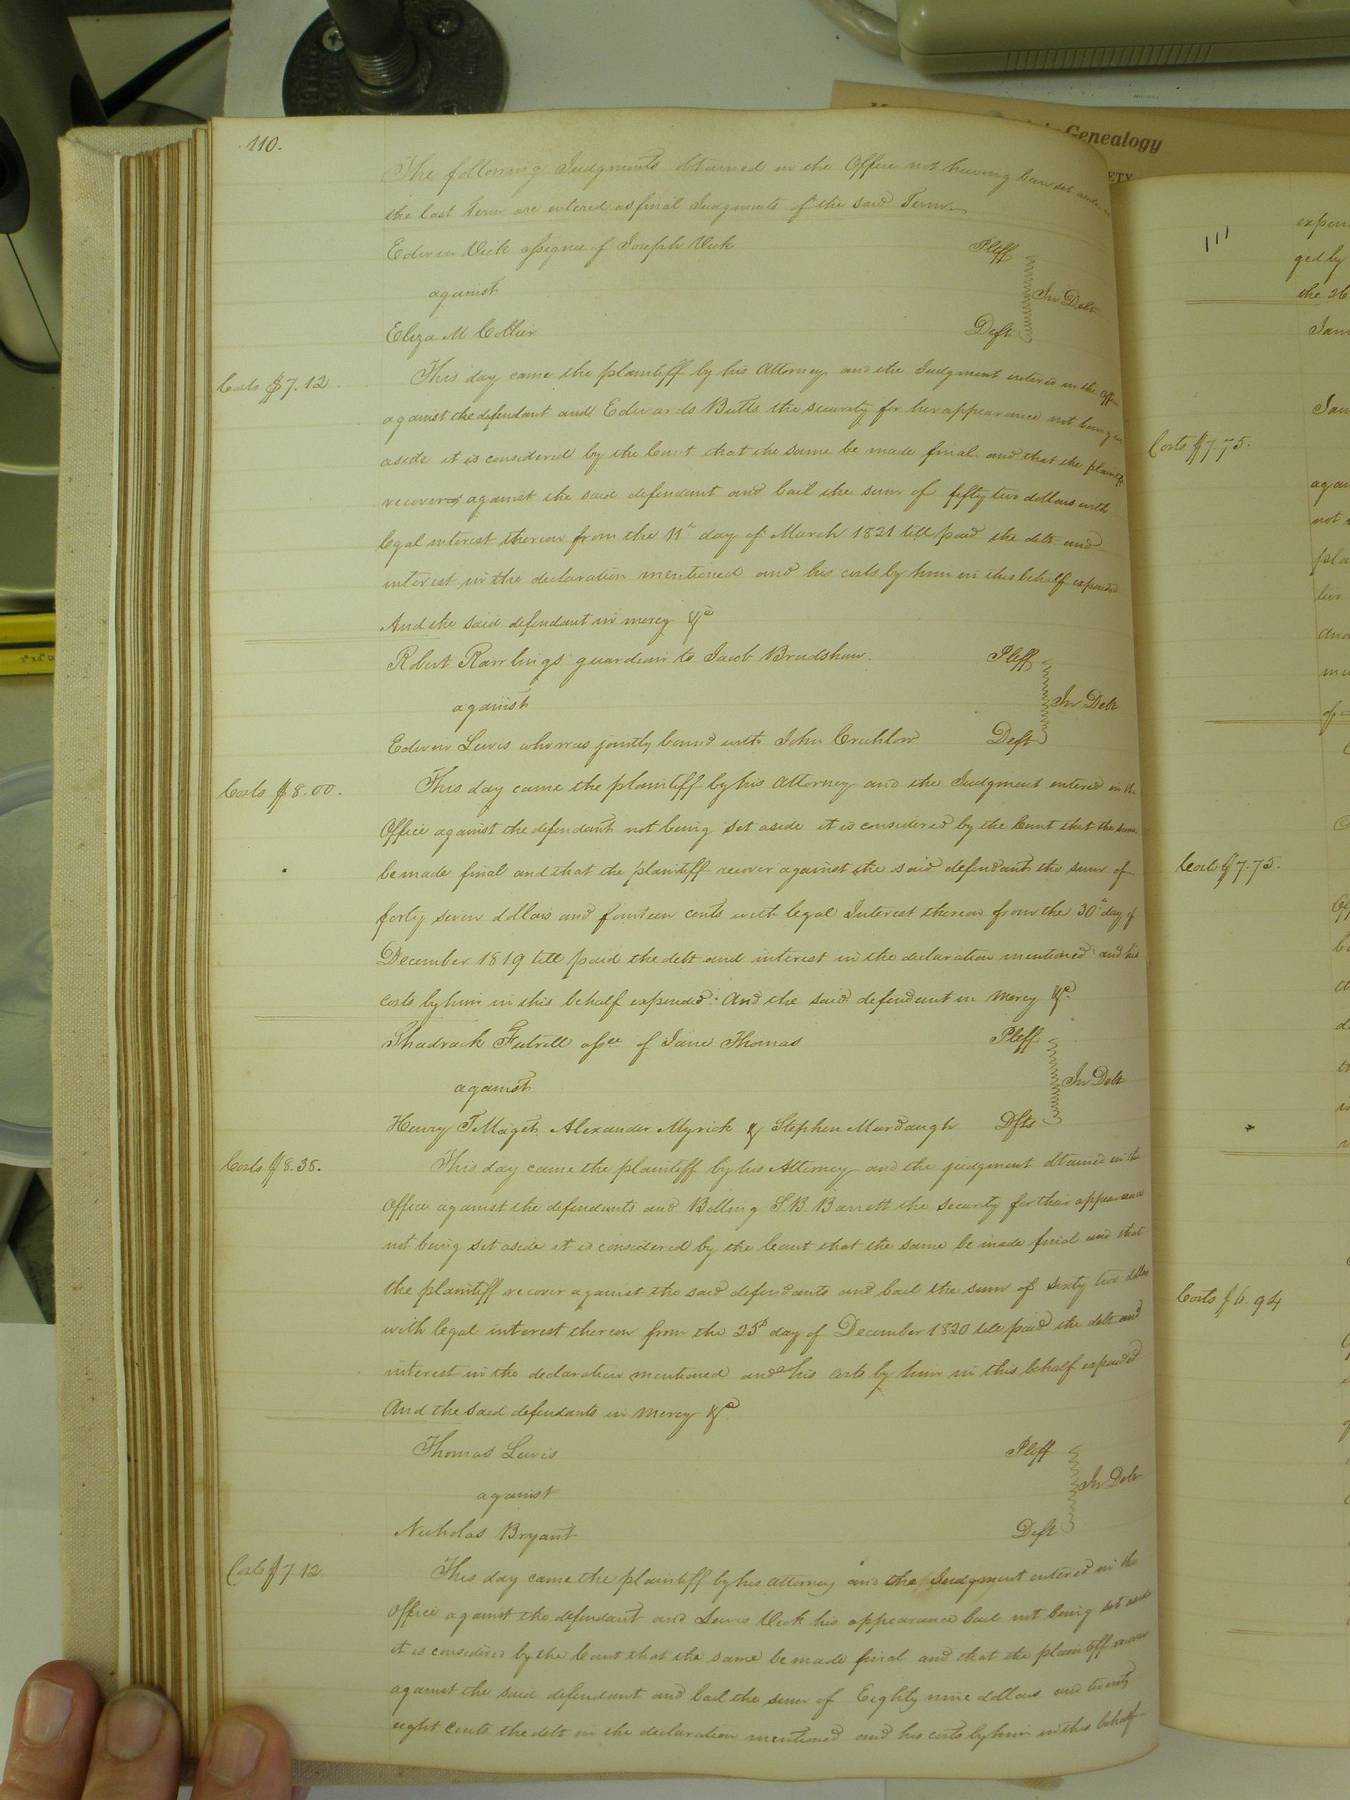 110.
The following Judgments obtained in the Office not having been set aside
the last Term are entered as final Judgments of the said Term.
Edwin Vick assignee of Joseph Vick Pltff
against In Debt
Eliza M Collier Deft
Costs $7.12.
This day came the plaintiff by his Attorney and the Judgment entered in the Off
against the defendant and Edwards Butts the security for her appearance not being
aside it is considered by the Court that the same be made final and that the plaintiff
recover against the said defendant and bail the sum of fifty two dollars with
legal interest thereon from the 11th day of March 1821 till paid the debt and
interest in the declaration mentioned and his costs by him in this behalf expended
And the said defendant in mercy &c
Robert Rawlings guardian to Jacob Bradshaw Pltff
against In Debt
Edwin Lewis who was jointly bound with John Crichlow Deft
Costs $8.00.
This day came the plaintiff by his Attorney and the Judgment entered in the
Office against the defendant not being set aside it is considered by the Court that the same
be made final and that the plaintiff recover against the said defendant the sum of
forty seven dollars and fourteen cents with legal Interest thereon from the 30th day of
December 1819 till paid the debt and interest in the declaration mentioned and his
costs by him in this behalf expended. And the said defendant in Mercy &c.
Shadrack Futrell assee of Jane Thomas Pltff
against In Debt
Henry T Maget, Alexander Myrick & Stephen Murdaugh Dfts
Costs $8.38.
This day came the plaintiff by his Attorney and the judgment obtained in the
Office against the defendants and Bolling S. B. Barrett the security for their appearance
not being set aside it is considered by the Court that the same be made final and that
the plaintiff recover against the said defendants and bail the sum of sixty two dollars
with legal interest thereon from the 25th day of December 1820 till paid the debt and
interest in the declaration mentioned and his costs by him in this behalf expended
And the said defendants in mercy &c
Thomas Lewis Pltff
against In Debt
Nicholas Bryant Deft
Costs $7.12
This day came the plaintiff by his attorney and the Judgment entered in the
Office against the defendant and Lewis Vick his appearance bail not being set aside
it is considered by the Court that the same be made final and that the plaintiff recover
against the said defendant and bail the sum of Eighty nine dollars and twenty
eight Cents the debt in the declaration mentioned and his costs by him in this behalf
Genealogy
111
expen
ged by
the 26
Jam
Jam
Costs $7.75.
agai
not
pla
and
Costs $7.75.
Costs $6.94